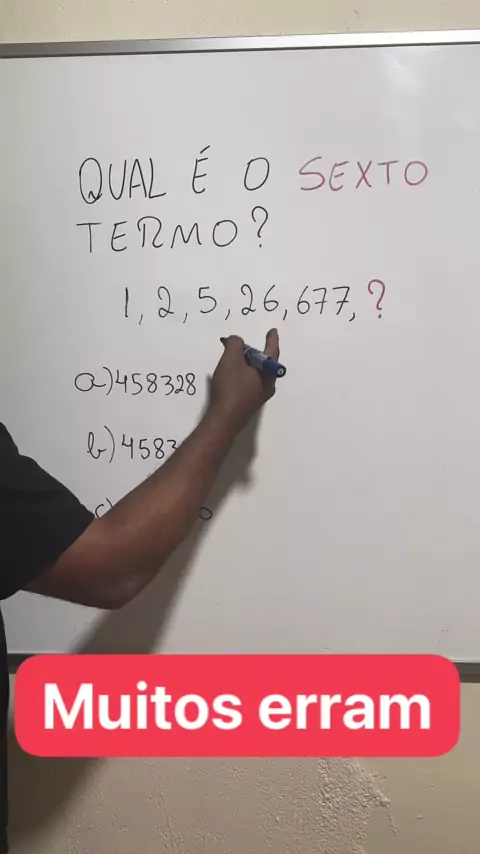 QUAL É O SEXTO
TERMO?
1, 2, 5, 26, 677, ?
a) 458328
b) 458
c)
Muitos erram